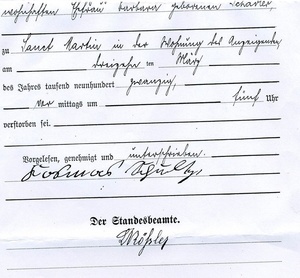 wohnhaften Ehefrau Barbara geborenen Schäfer,
zu Sanct Martin in der Wohnung des Anzeigenden
am dreizehn ten März
des Jahres tausend neunhundert zwanzig,
vor mittags um fünf Uhr
verstorben sei.
Vorgelesen, genehmigt und unterschrieben.
Kosmas Schultz
Der Standesbeamte.